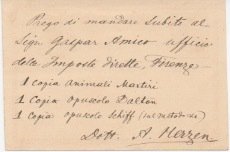 Prego di mandare subito al
Sigr. Gaspar Amico ufficio
delle Imposte Dirette Firenze
1 copia Animali Martiri
1 copia opuscolo Dalton
1 copia opuscolo Schiff (sul metodo
Dott. A. Herzen